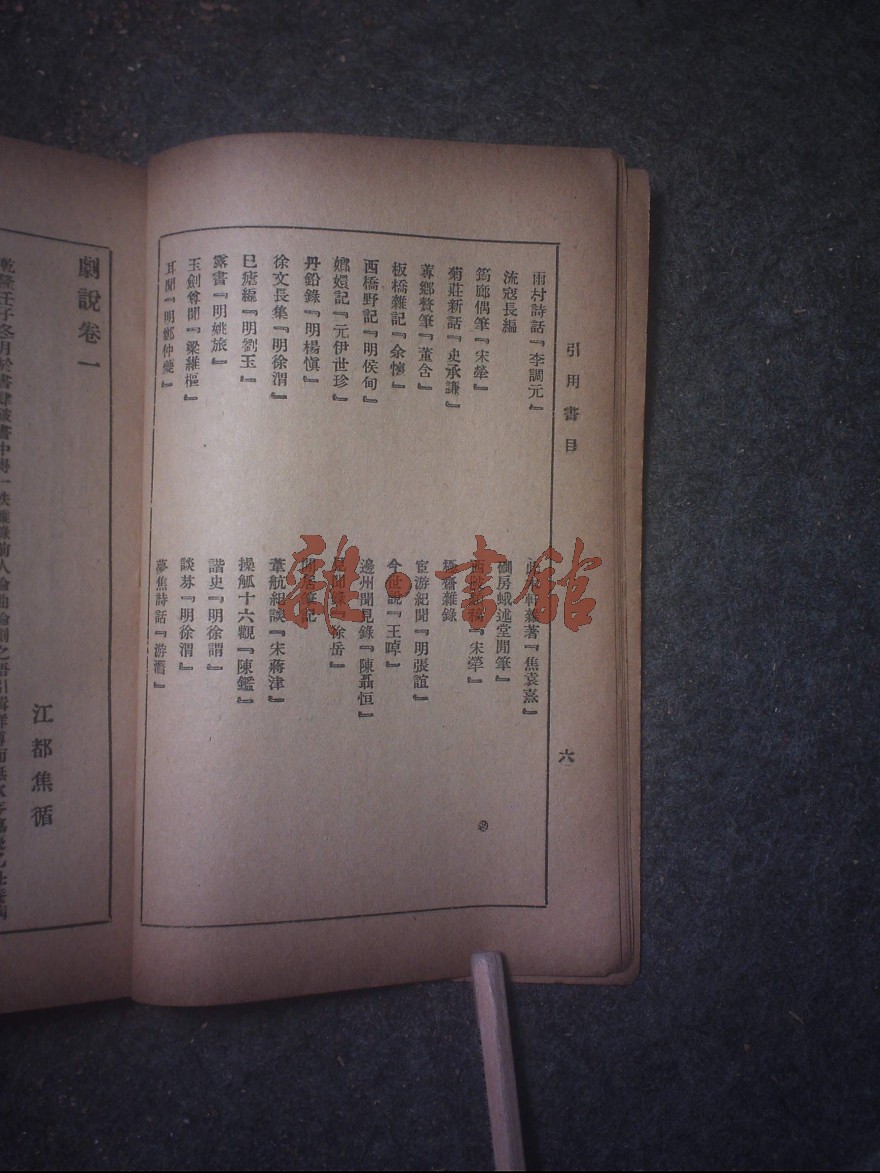 引用書目
六
雨村詩話『李調元』
流寇長編
筠廊偶筆『宋犖』
菊莊新話『史承謙』
蓴鄉贅筆『董含』
板橋雜記『余懷』
西橋野記『明侯甸』
嫏嬛記『元伊世珍』
丹鉛錄『明楊愼』
徐文長集『明徐渭』
巳瘧編『明劉玉』
露書『明姚旅』
玉劍尊聞『梁維樞』
耳聞『明鄭仲夔』
著『焦袁熹』
蛾述堂閒筆』
『宋犖』
極齋雜錄
宦游紀聞『明張誼』
今世說『王晫』
邊州聞見錄『陳聶恒』
見聞錄『徐岳』
葦航紀談『宋蔣津』
操觚十六觀『陳鑑』
諧史『明徐謂』
談芬『明徐渭』
夢焦詩話『游潛』
雜·書館
劇說卷一
江都焦循
乾隆壬子冬月於書肆破書中得一帙雜錄前人論曲論劇之語引輯詳博而無次序嘉慶乙丑